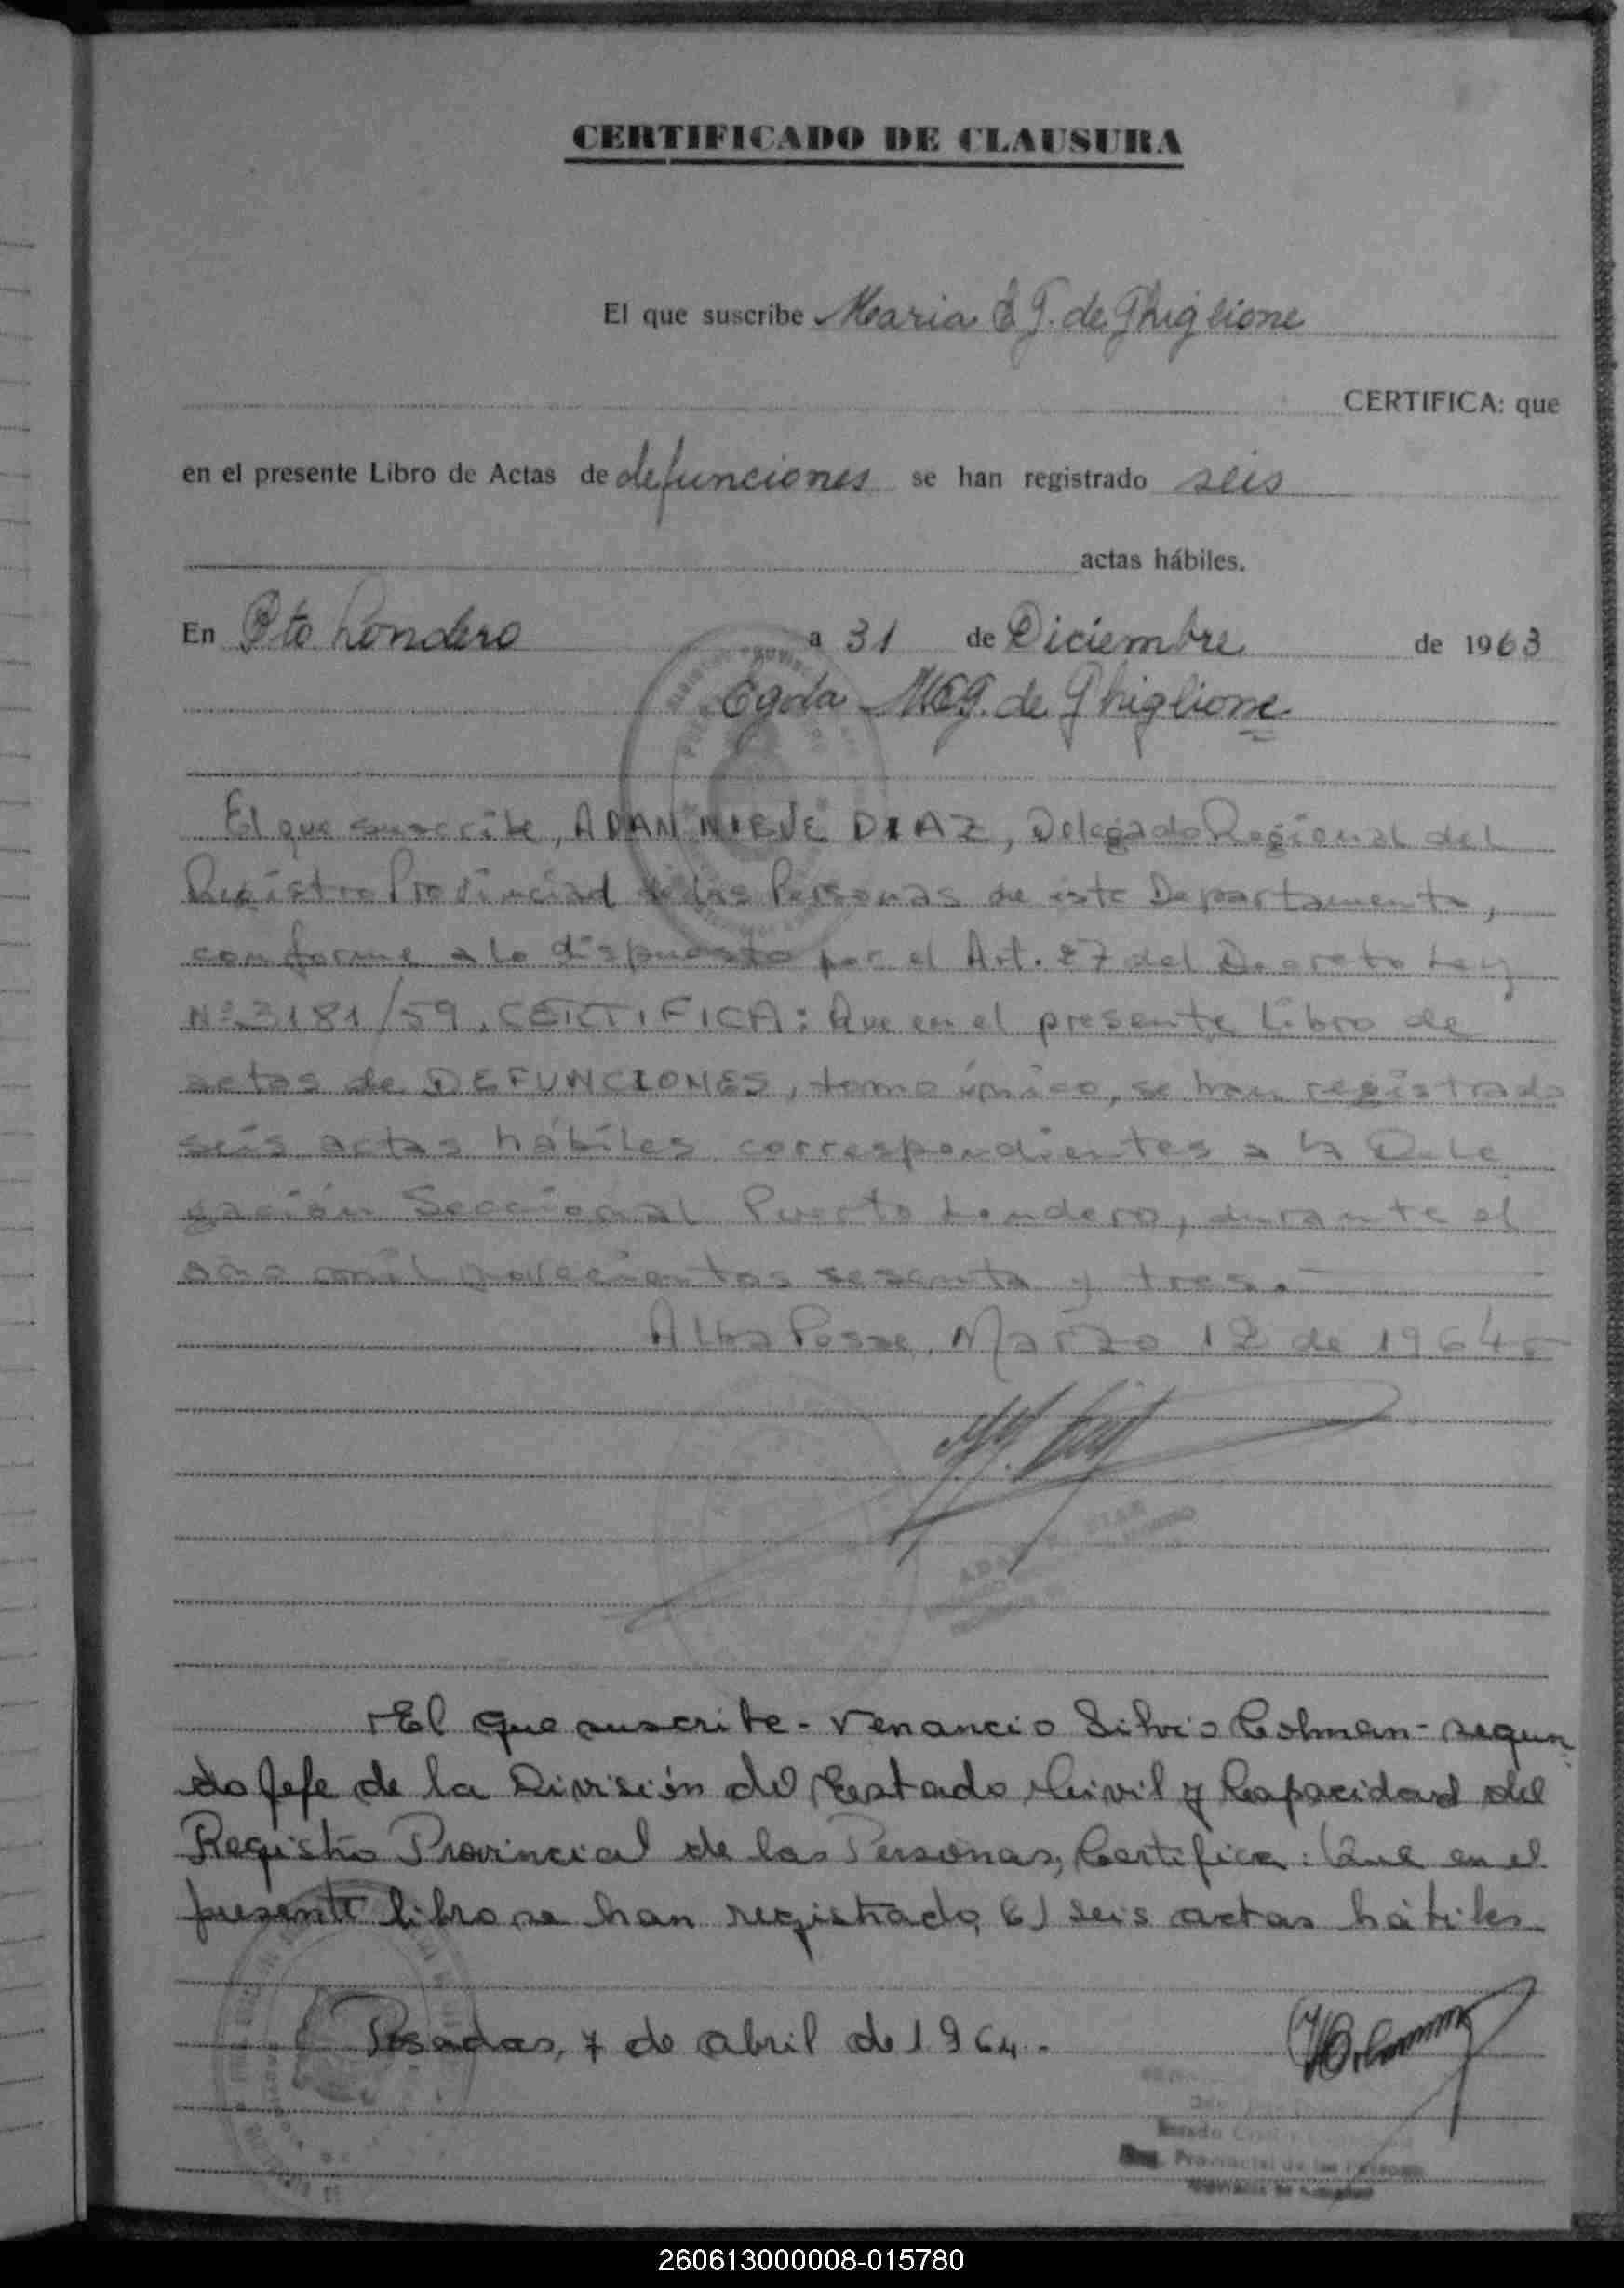 CERTIFICADO DE CLAUSURA
El que suscribe Maria E G. de Ghiglione
CERTIFICA: que
en el presente Libro de Actas de defunciones se han registrado seis
actas hábiles.
En Pto Londero a 31 de Diciembre de 1963
Egda M.E.G. de Ghiglione
El que suscribe, ADAN NIEVE DIAZ, Delegado Regional del
Registro Provincial de las Personas de este Departamento,
conforme a lo dispuesto por el Art. 27 del Decreto Ley
Nº 3181/59, CERTIFICA: Que en el presente Libro de
actas de DEFUNCIONES, tomo único, se han registrado
seis actas hábiles correspondientes a la Dele
gación Seccional Puerto Londero, durante el
año mil novecientos sesenta y tres.
Alba Posse, Marzo 12 de 1964.-
El que suscribe - Venancio Silvio Colman - segun
do Jefe de la División del Estado Civil y Capacidad del
Registro Provincial de las Personas, Certifica: Que en el
presente libro se han registrado 6) seis actas hábiles
Posadas, 7 de abril de 1964.-
Estado Civil y
Reg. Provincial de las Personas
260613000008-015780